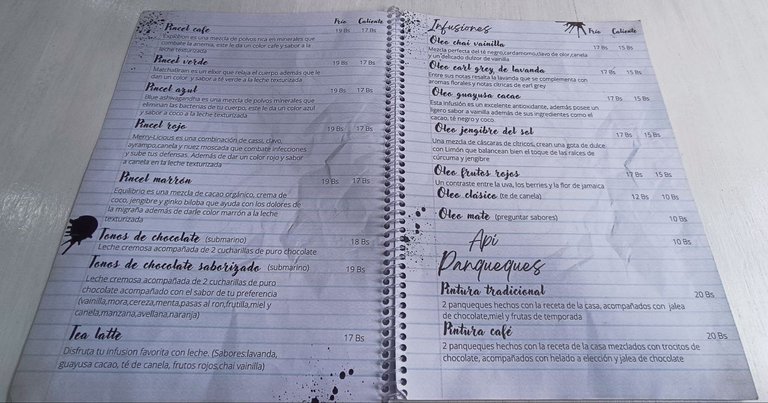 Frío Caliente
Pincel cafe 19 Bs 17 Bs
Explotion es una mezcla de polvos rica en minerales que
combate la anemia, este le da un color cafe y sabor a la
leche texturizada
Pincel verde 19 Bs 17 Bs
Matchaliteram es un elixir que relaja el cuerpo además que le
dan un color y sabor a té verde a la leche texturizada
Pincel azul 19 Bs 17 Bs
Blue ashwagandha es una mezcla de polvos minerales que
eliminan las bacterias de tu cuerpo, este le da un color azul
y sabor a coco a la leche texturizada
Pincel rojo 19 Bs 17 Bs
Merry-Licious es una combinación de cassi, clavo,
ayrampo,canela y nuez moscada que combate infecciones
y sube tus defensas. Además de dar un color rojo y sabor
a canela en la leche texturizada
Pincel marrón 19 Bs 17 Bs
Equilibrio es una mezcla de cacao orgánico, crema de
coco, jengibre y ginko biloba que ayuda con los dolores de
la migraña además de darle color marrón a la leche
texturizada
Tonos de chocolate (submarino) 18 Bs
Leche cremosa acompañada de 2 cucharillas de puro chocolate
Tonos de chocolate saborizado (submarino) 19 Bs
Leche cremosa acompañada de 2 cucharillas de puro
chocolate acompañado con el sabor de tu preferencia
(vainilla,mora,cereza,menta,pasas al ron,frutilla,miel y
canela,manzana,avellana,naranja)
Tea latte 17 Bs
Disfruta tu infusion favorita con leche. (Sabores:lavanda,
guayusa cacao, té de canela, frutos rojos,chai vainilla)
Infusiones Frío Caliente
Oleo chai vainilla 17 Bs 15 Bs
Mezcla perfecta del té negro,cardamomo,clavo de olor,canela
y un delicado dulzor de vainilla
Oleo earl grey de lavanda 17 Bs 15 Bs
Entre sus notas resalta la lavanda que se complementa con
aromas florales y notas citricas de earl grey
Oleo guayusa cacao 17 Bs 15 Bs
Esta infusión es un excelente antioxidante, además posee un
ligero sabor a vainilla además de sus ingredientes como el
cacao, té negro y coco.
Oleo jengibre del sol 17 Bs 15 Bs
Una mezcla de cáscaras de cítricos, crean una gota de dulce
con Limón que balancean bien el toque de las raíces de
cúrcuma y jengibre
Oleo frutos rojos 17 Bs 15 Bs
Un contraste entre la uva, los berries y la flor de jamaica
Oleo clásico (te de canela) 12 Bs 10 Bs
Oleo mate (preguntar sabores) 10 Bs
Api 10 Bs
Panqueques
Pintura tradicional 20 Bs
2 panqueques hechos con la receta de la casa, acompañados con jalea
de chocolate,miel y frutas de temporada
Pintura café 20 Bs
2 panqueques hechos con la receta de la casa mezclados con trocitos de
chocolate, acompañados con helado a elección y jalea de chocolate